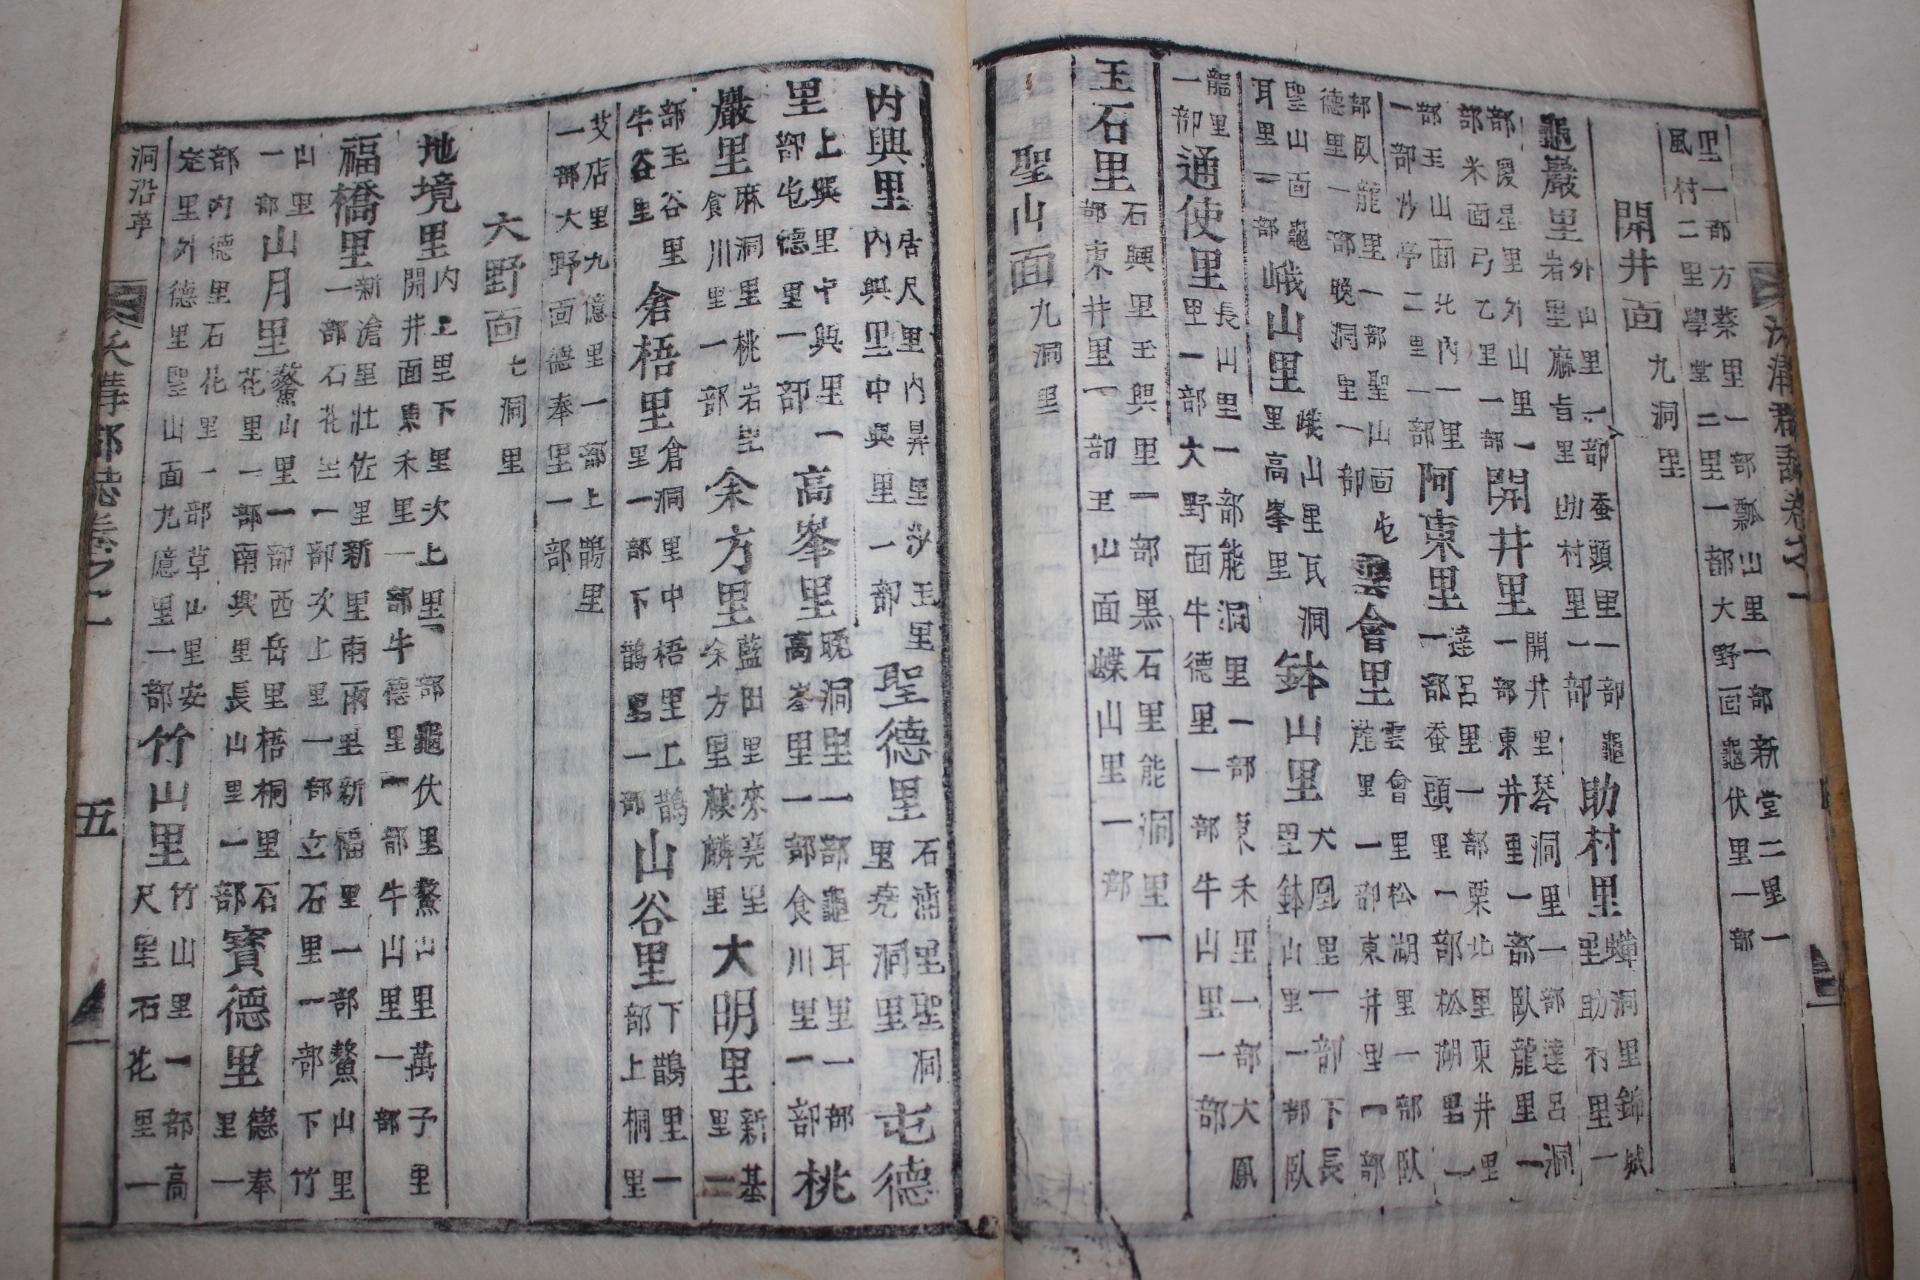 里一部方蔡里一部瓢山里一部新堂二里一
風村二里學堂二里一部大野面龜伏里一部
開井面九洞里
龜巖里外山里一部蚕頭里一部龜岩里麻旨里助村里一部助村里蟬洞里錦城里助村里一
部慶星里外山里一部米面弓乙里一部開井里開井里琴洞里一部達呂洞一部東井里一部臥龍里一
部王山面北內一里一部抄亭二里一部阿東里達呂里一部栗北里東井里一部蚕頭里一部松湖里一
部臥龍里一部聖山面屯德里一部晚洞里一部雲會里雲會里松湖里一部臥里一部東井里一部
聖山面龜耳里一部峨山里山里瓦洞里高峯里鉢山里大凰里一部下長里鉢山里一部臥
龍里一部通使里長山里一部能洞里一部東禾里一部大鳳里一部大野面牛德里一部牛山里一部
玉石里石興里玉興里一部黑石里能洞里一部東井里一部王山面蝶山里一部
聖山面九洞里
內興里居尺里內昇里沙玉里內興里中興里一部聖德里石浦里聖洞里堯洞里屯德
里上興里中興里一部屯德里一部高峯里晚洞里一部龜耳里一部高峯里一部食川里一部桃
巖里麻洞里桃岩里食川里一部余方里藍田里來堯里余方里麒麟里大明里新基里一
部玉谷里牛谷里倉梧里倉洞里中梧里上鵲里一部下鵲里一部山谷里下鵲里一部上桐里
艾店里九億里一部上鵲里一部大野面德奉里一部
大野面七洞里
地境里內上里下里次上里一部龜伏里鰲山里萬子里開井面東禾里一部牛德里一部牛山里一部
福橋里新滄里壯佐里新里南雨里新福里一部鰲山里一部石花里一部次上里一部立石里一部下竹
山里一部山月里鰲山里一部西岳里梧桐里石花里一部南興里長山里一部寶德里德奉里一
部內德里石花里一部草山里安定里外德里聖山面九億里一部竹山里竹山里一部高尺里石花里一
洞沿革
沃溝郡誌卷之一
五